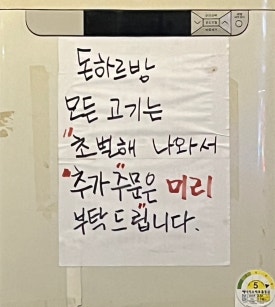 돈하르방
모든 고기는
"초벌해 나와서
"추가"주문은 미리
부탁드립니다.
5